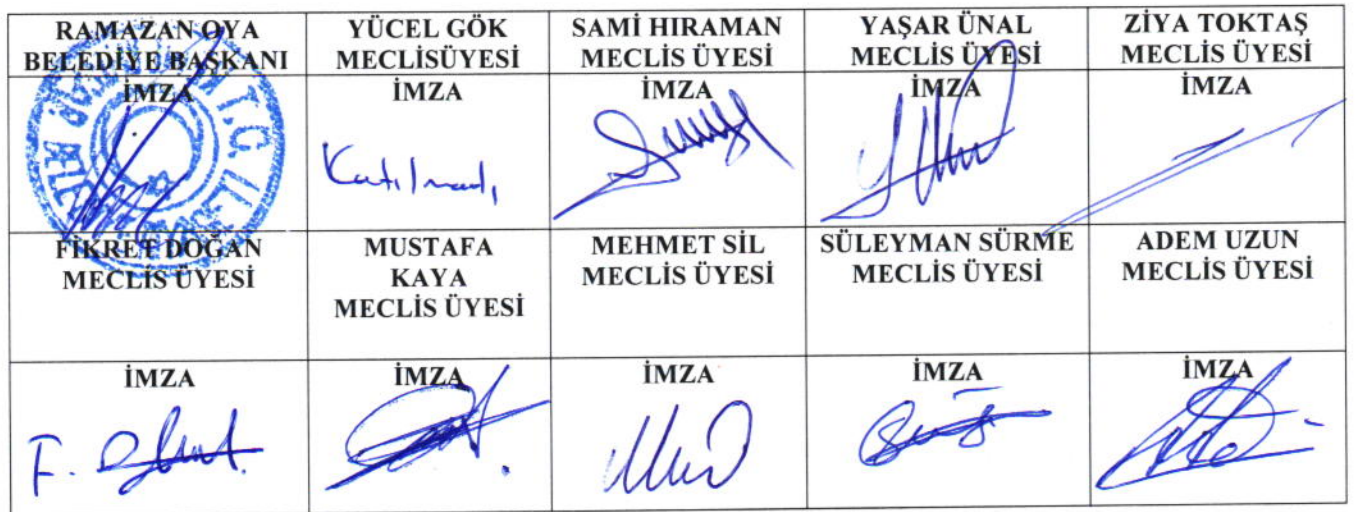 RAMAZAN OYA
BELEDİYE BAŞKANI
YÜCEL GÖK
MECLİSÜYESİ
SAMİ HIRAMAN
MECLİS ÜYESİ
YAŞAR ÜNAL
MECLİS ÜYESİ
ZİYA TOKTAŞ
MECLİS ÜYESİ
İMZA
İMZA
İMZA
İMZA
İMZA
Katılmadı
T.C.
FİKRET DOĞAN
MECLİS ÜYESİ
MUSTAFA
KAYA
MECLİS ÜYESİ
MEHMET SİL
MECLİS ÜYESİ
SÜLEYMAN SÜRME
MECLİS ÜYESİ
ADEM UZUN
MECLİS ÜYESİ
İMZA
İMZA
İMZA
İMZA
İMZA